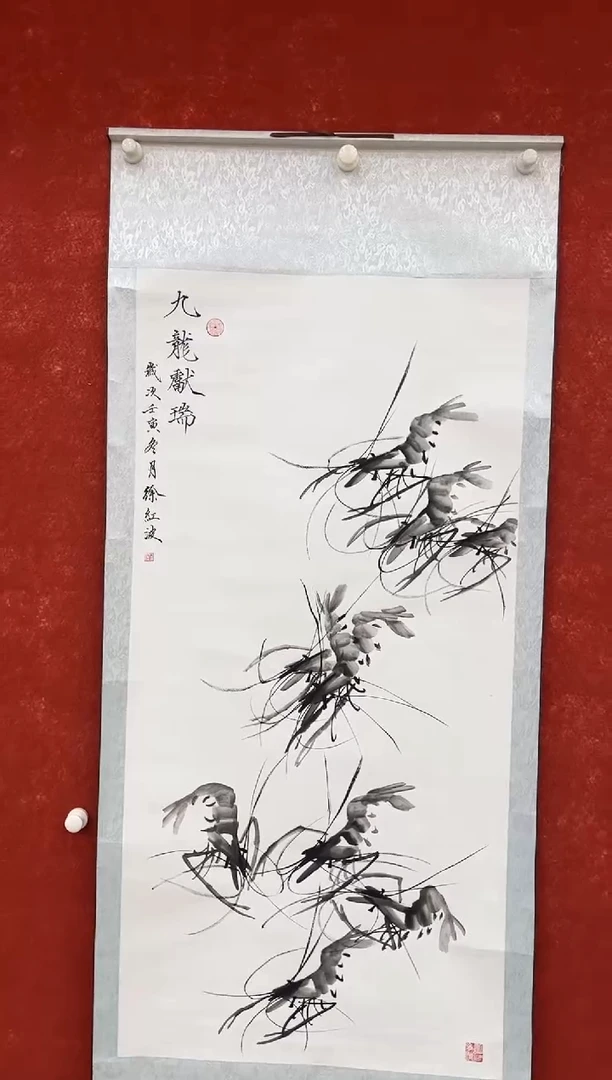 九龍獻瑞
歲次壬寅冬月徐紅波